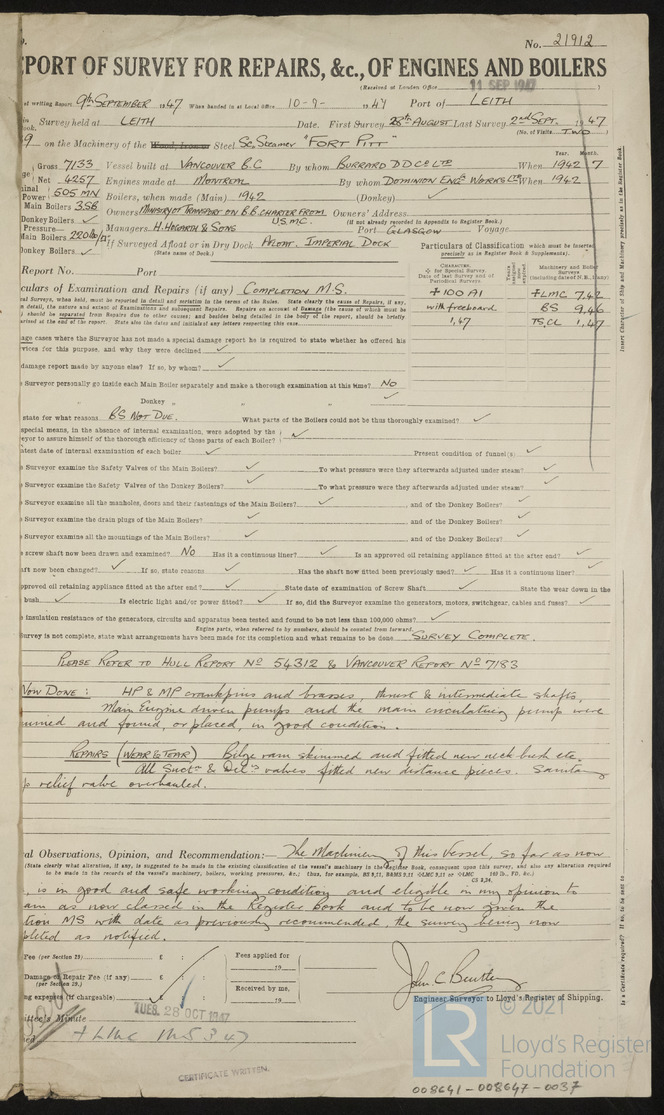 No. 21912
PORT OF SURVEY FOR REPAIRS, &c., OF ENGINES AND BOILERS
(Received at London Office 11 SEP 1947 )
of writing Report 9th SEPTEMBER 1947 When handed in at Local Office 10-9- 1947 Port of LEITH
Survey held at LEITH Date. First Survey 28th AUGUST Last Survey 2nd SEPT. 1947
Book. (No. of Visits TWO )
9 on the Machinery of the Wood, Iron or Steel Sc. Steamer "FORT PITT"
Gross 7133 Vessel built at VANCOUVER B.C By whom BURRARD D D CO LTD When 1942 7
Year. Month.
Net 4257 Engines made at MONTREAL By whom DOMINION ENG. WORKS LTD When 1942
Power 505 MN Boilers, when made (Main) 1942 (Donkey) ✓
Main Boilers 3SB Owners MINISTRY OF TRANSPORT ON B.B. CHARTER FROM U.S.M.C. Owners' Address
(If not already recorded in Appendix to Register Book.)
Donkey Boilers ✓ Managers H. HOGARTH & SONS Port GLASGOW Voyage
Pressure—
Main Boilers 220 If Surveyed Afloat or in Dry Dock AFLOAT. IMPERIAL DOCK
(State name of Dock.)
Donkey Boilers ✓
Particulars of Classification which must be inserted
precisely as in Register Book & Supplements).
Report No. Port
CHARACTER.
Date of last Survey and of Periodical Surveys
Machinery and Boiler Surveys
culars of Examination and Repairs (if any) COMPLETION M.S.
+100 A1 +LMC 7,42
with freeboard BS 9,46
1,47 TS,CL 1,47
age cases where the Surveyor has not made a special damage report he is required to state whether he offered his
vices for this purpose, and why they were declined ✓
damage report made by anyone else? If so, by whom? ✓
Surveyor personally go inside each Main Boiler separately and make a thorough examination at this time? NO
" Donkey " " " ✓
state for what reasons BS NOT DUE. What parts of the Boilers could not be thoroughly examined? ✓
special means, in the absence of internal examination, were adopted by the
veyor to assure himself of the thorough efficiency of those parts of each Boiler? ✓
atest date of internal examination of each boiler ✓ Present condition of funnel(s) ✓
Surveyor examine the Safety Valves of the Main Boilers? ✓ To what pressure were they afterwards adjusted under steam? ✓
Surveyor examine the Safety Valves of the Donkey Boilers? ✓ To what pressure were they afterwards adjusted under steam? ✓
Surveyor examine all the manholes, doors and their fastenings of the Main Boilers? ✓ and of the Donkey Boilers? ✓
Surveyor examine the drain plugs of the Main Boilers? ✓ and of the Donkey Boilers? ✓
Surveyor examine all the mountings of the Main Boilers? ✓ and of the Donkey Boilers? ✓
screw shaft now been drawn and examined? NO Has it a continuous liner? ✓ Is an approved oil retaining appliance fitted at the after end? ✓
aft now been changed? ✓ If so, state reasons ✓ Has the shaft now fitted been previously used? ✓ Has it a continuous liner? ✓
pproved oil retaining appliance fitted at the after end? ✓ State date of examination of Screw Shaft ✓ State the wear down in the
bush ✓ Is electric light and/or power fitted? ✓ If so, did the Surveyor examine the generators, motors, switchgear, cables and fuses? ✓
insulation resistance of the generators, circuits and apparatus been tested and found to be not less than 100,000 ohms? ✓
Engine parts, when referred to by numbers, should be counted from forward.
Survey is not complete, state what arrangements have been made for its completion and what remains to be done SURVEY COMPLETE.
PLEASE REFER TO HULL REPORT No 54312 & VANCOUVER REPORT No 7183
NOW DONE : HP & MP crankpins and brasses, thrust & intermediate shafts,
Main Engine driven pumps and the main circulating pump were
mined and found, or placed, in good condition.
REPAIRS (WEAR & TEAR) Bilge ram skimmed and fitted new neck bush etc.
All Suctn & Delys valves fitted new distance pieces. Sanitary
p relief valve overhauled.
al Observations, Opinion, and Recommendation:— The Machinery of this Vessel, so far as now
(State clearly what alteration, if any, is suggested to be made in the existing classification of the vessel's machinery in the Register Book, consequent upon this survey, and also any alteration required
to be made in the records of the vessel's machinery, boilers, working pressures, &c.; thus, for example, BS 9,11, B&MS 9,11 +LMC 9,11 or +LMC 140 lb., FD, &c.)
CS 9,34,
, is in good and safe working condition and eligible in my opinion to
ain as now classed in the Register Book and to be now given the
tion MS with date as previously recommended, the survey being now
pleted as notified.
Fee (per Section 29) £ : : Fees applied for
19
Damage or Repair Fee (if any) £ : :
(per Section 29.)
Received by me,
ng expenses (if chargeable) £ : : 19
Engineer Surveyor to Lloyd's Register of Shipping.
ittee's Minute TUES. 28 OCT 1947
+ LMC MS 3 47
CERTIFICATE WRITTEN.
© 2021
LR
Lloyd's Register
Foundation
008641-008647-0037
Insert Character of Ship and Machinery precisely as in the Register Book.
Is a Certificate required? If so, to be sent to